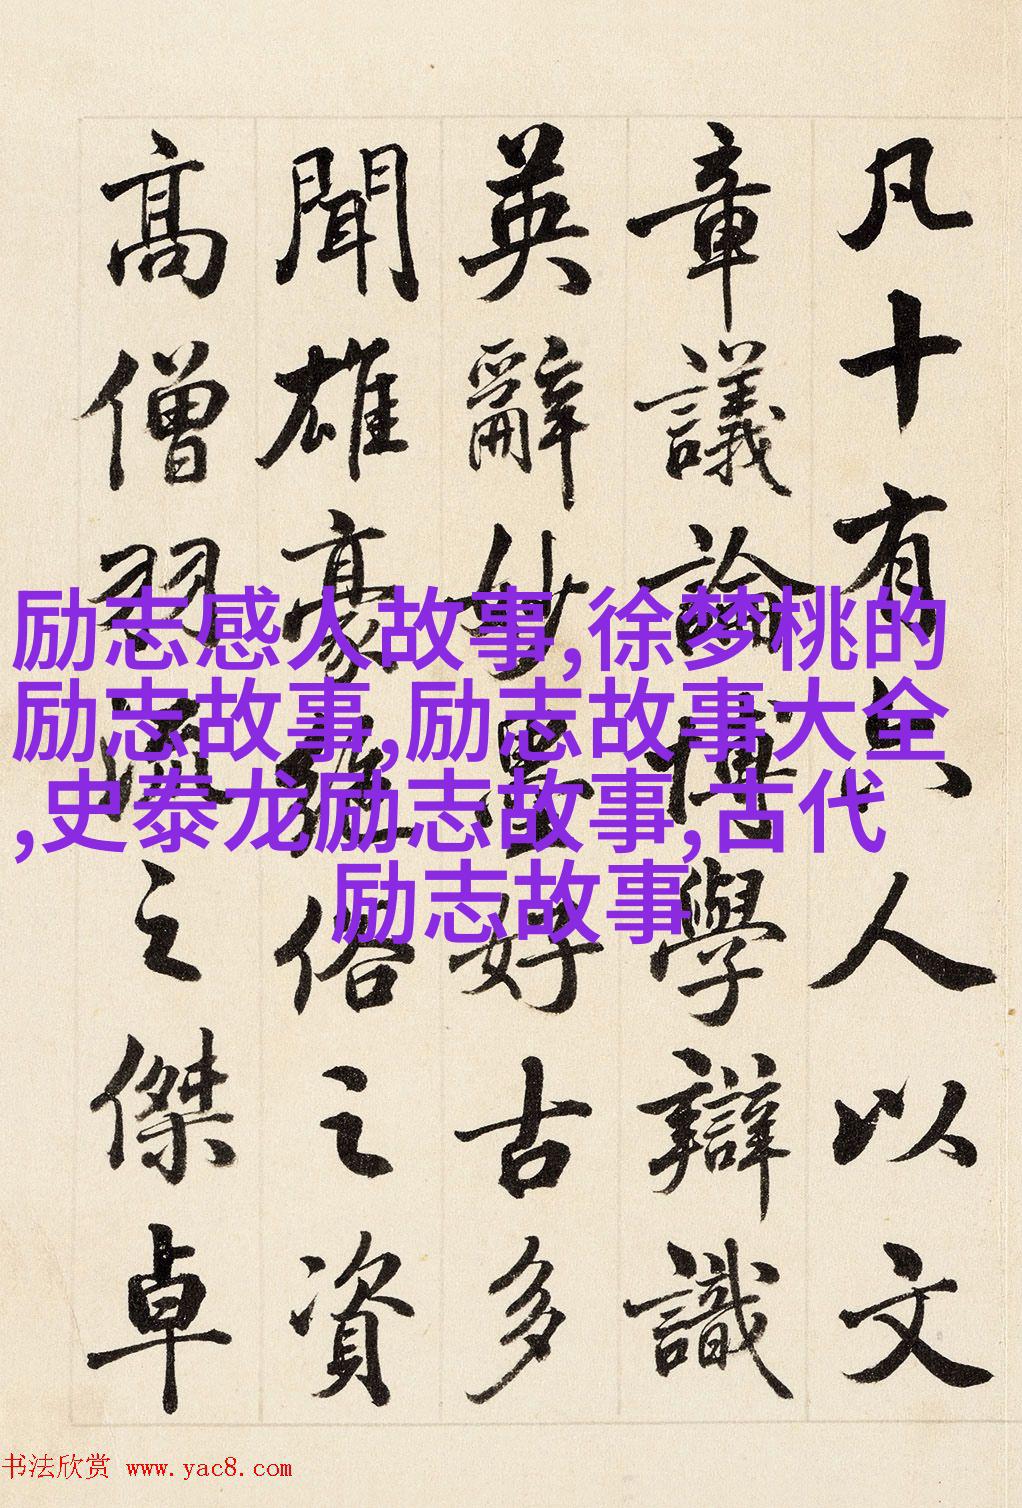 凡十有六人以文
章議論博學辯識
英辭妙墨好古多
聞雄豪絕俗之資
高僧羽流之傑卓
励志感人故事,徐梦桃的
励志故事,励志故事大全
,史泰龙励志故事,古代
励志故事
书法欣赏 www.yac8.com